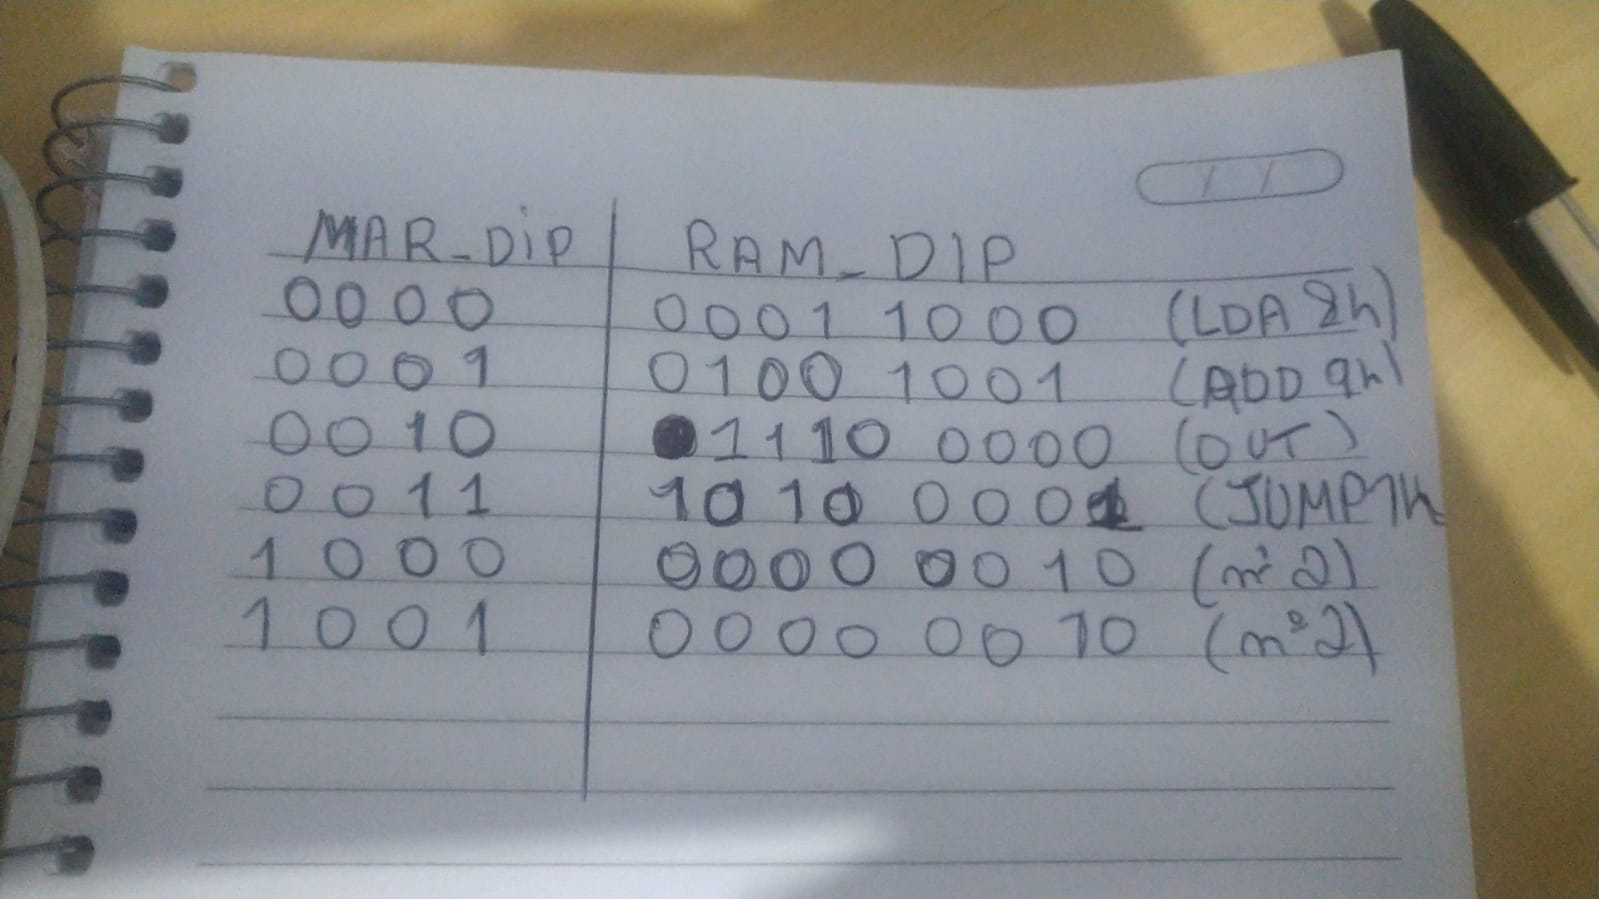 MAR_DiP RAM_DIP
0000 0001 1000 (LDA 8h)
0001 0100 1001 (ADD 9h)
0010 1110 0000 (OUT)
0011 1010 0001 (JUMP 1h
1000 0000 0010 (nº 2)
1001 0000 0010 (nº 2)